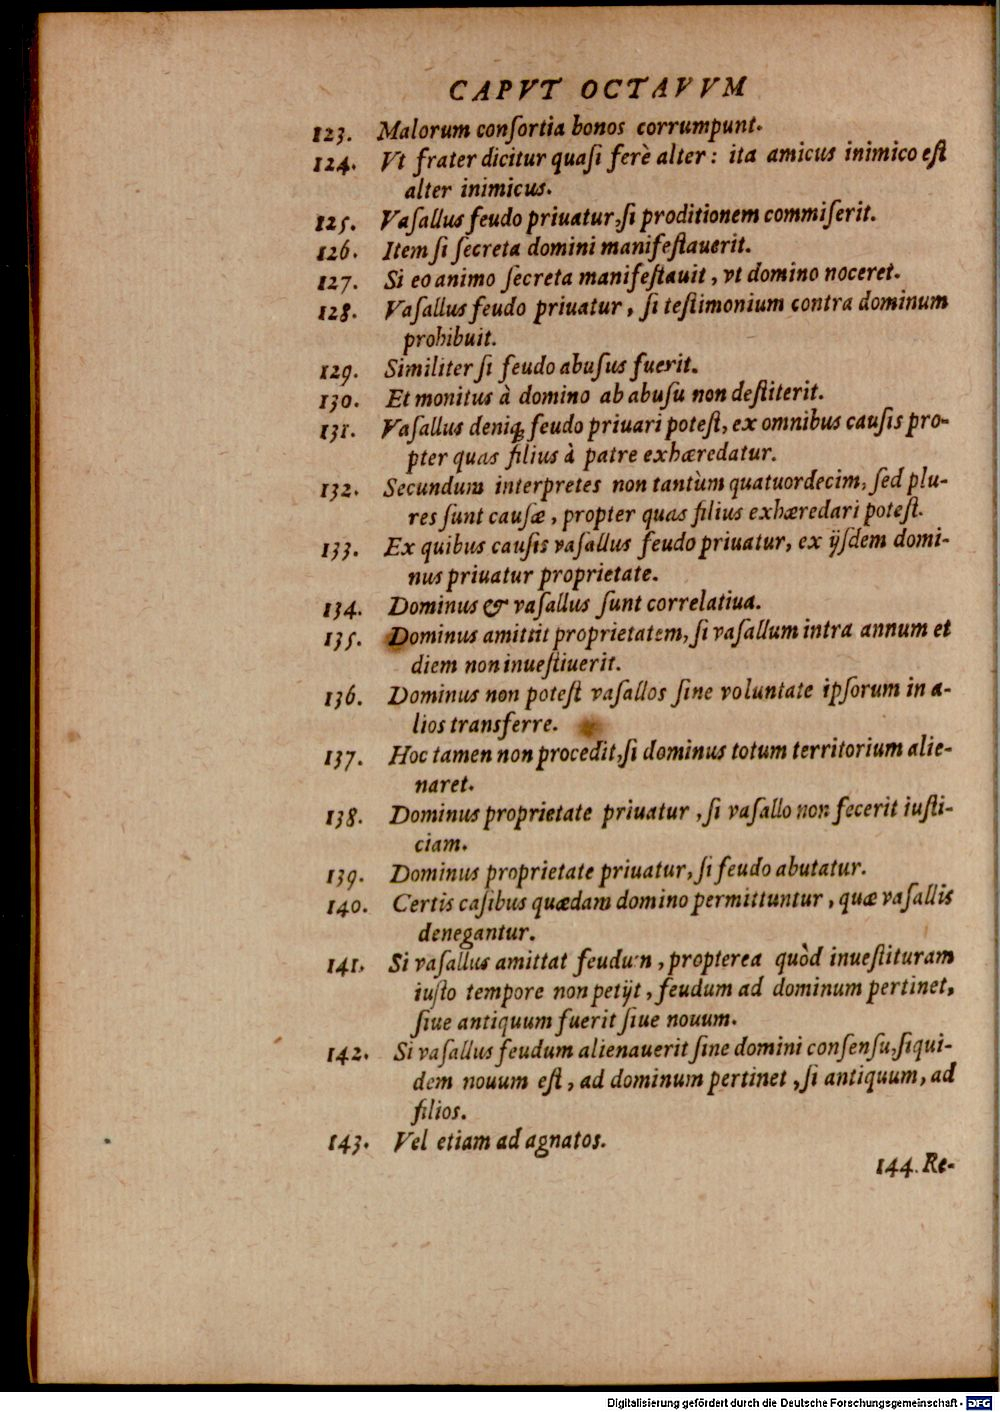 CAPVT OCTAVVM
123. Malorum conſortia bonos corrumpunt.
124. Vt frater dicitur quaſi ferè alter: ita amicus inimico eſt
alter inimicus.
125. Vaſallus feudo priuatur, ſi proditionem commiſerit.
126. Item ſi ſecreta domini manifeſtauerit.
127. Si eo animo ſecreta manifeſtauit, vt domino noceret.
128. Vaſallus feudo priuatur, ſi teſtimonium contra dominum
prohibuit.
129. Similiter ſi feudo abuſus fuerit.
130. Et monitus à domino ab abuſu non deſtiterit.
131. Vaſallus deniq; feudo priuari poteſt, ex omnibus cauſis pro-
pter quas filius à patre exhæredatur.
132. Secundum interpretes non tantùm quatuordecim, ſed plu-
res ſunt cauſæ, propter quas filius exhæredari poteſt.
133. Ex quibus cauſis vaſallus feudo priuatur, ex ijſdem domi-
nus priuatur proprietate.
134. Dominus & vaſallus ſunt correlatiua.
135. Dominus amittit proprietatem, ſi vaſallum intra annum et
diem non inueſtiuerit.
136. Dominus non poteſt vaſallos ſine voluntate ipſorum in a-
lios transferre.
137. Hoc tamen non procedit, ſi dominus totum territorium alie-
naret.
138. Dominus proprietate priuatur, ſi vaſallo non fecerit iuſti-
ciam.
139. Dominus proprietate priuatur, ſi feudo abutatur.
140. Certis caſibus quædam domino permittuntur, quæ vaſallis
denegantur.
141. Si vaſallus amittat feudum, propterea quòd inueſtituram
iuſto tempore non petijt, feudum ad dominum pertinet,
ſiue antiquum fuerit ſiue nouum.
142. Si vaſallus feudum alienauerit ſine domini conſenſu, ſiqui-
dem nouum eſt, ad dominum pertinet, ſi antiquum, ad
filios.
143. Vel etiam ad agnatos.
144. Re-
Digitalisierung gefördert durch die Deutsche Forschungsgemeinschaft - DFG